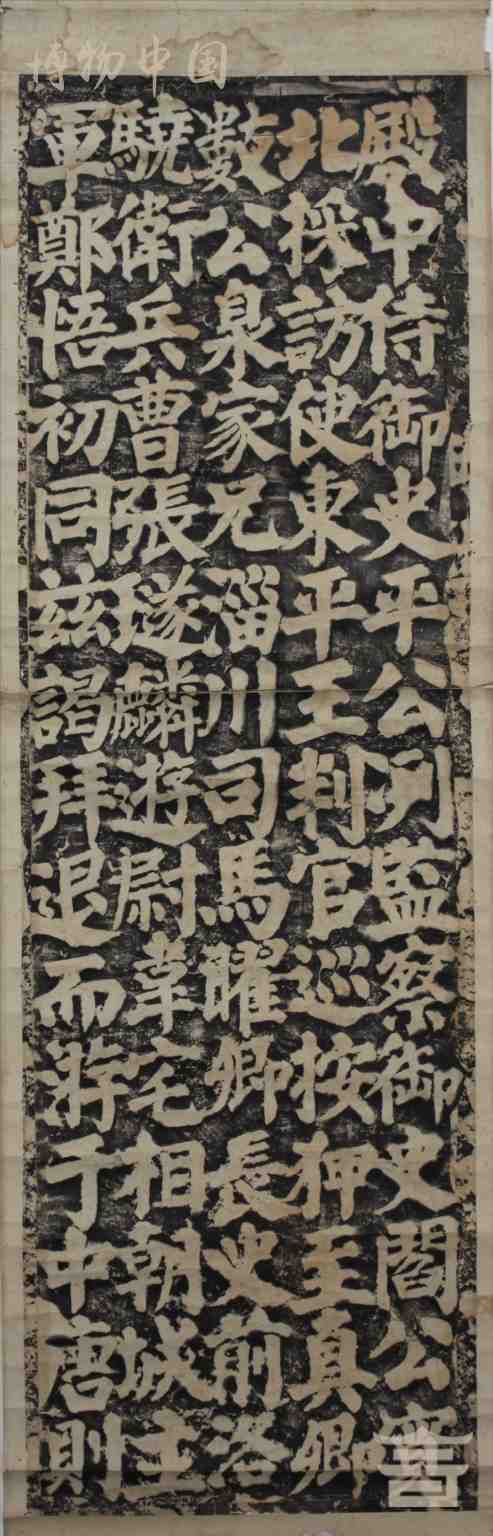 博物中国
殿中侍御史平公冽監察御史閻公
北採訪使東平王判官巡按狎至真卿
數公臮家兄淄川司馬曜卿長史前洛
驍衛兵曹張璲麟遊尉韋宅相朝城主
軍鄭悟初同兹謁拜退而游于中唐則